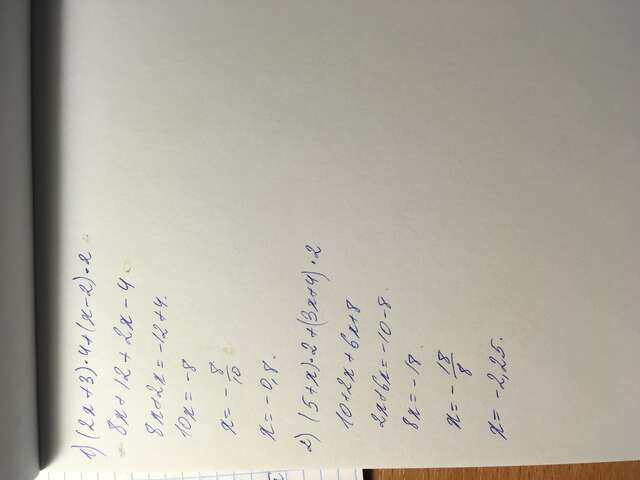 1) (2x+3)·4+(x-2)·2
8x+12+2x-4
8x+2x=-12+4.
10x=-8
x=-8/10
x=-0,8.
2) (5+x)·2+(3x+4)·2
10+2x+6x+8
2x+6x=-10-8.
8x=-18.
x=-18/8
x=-2,25.